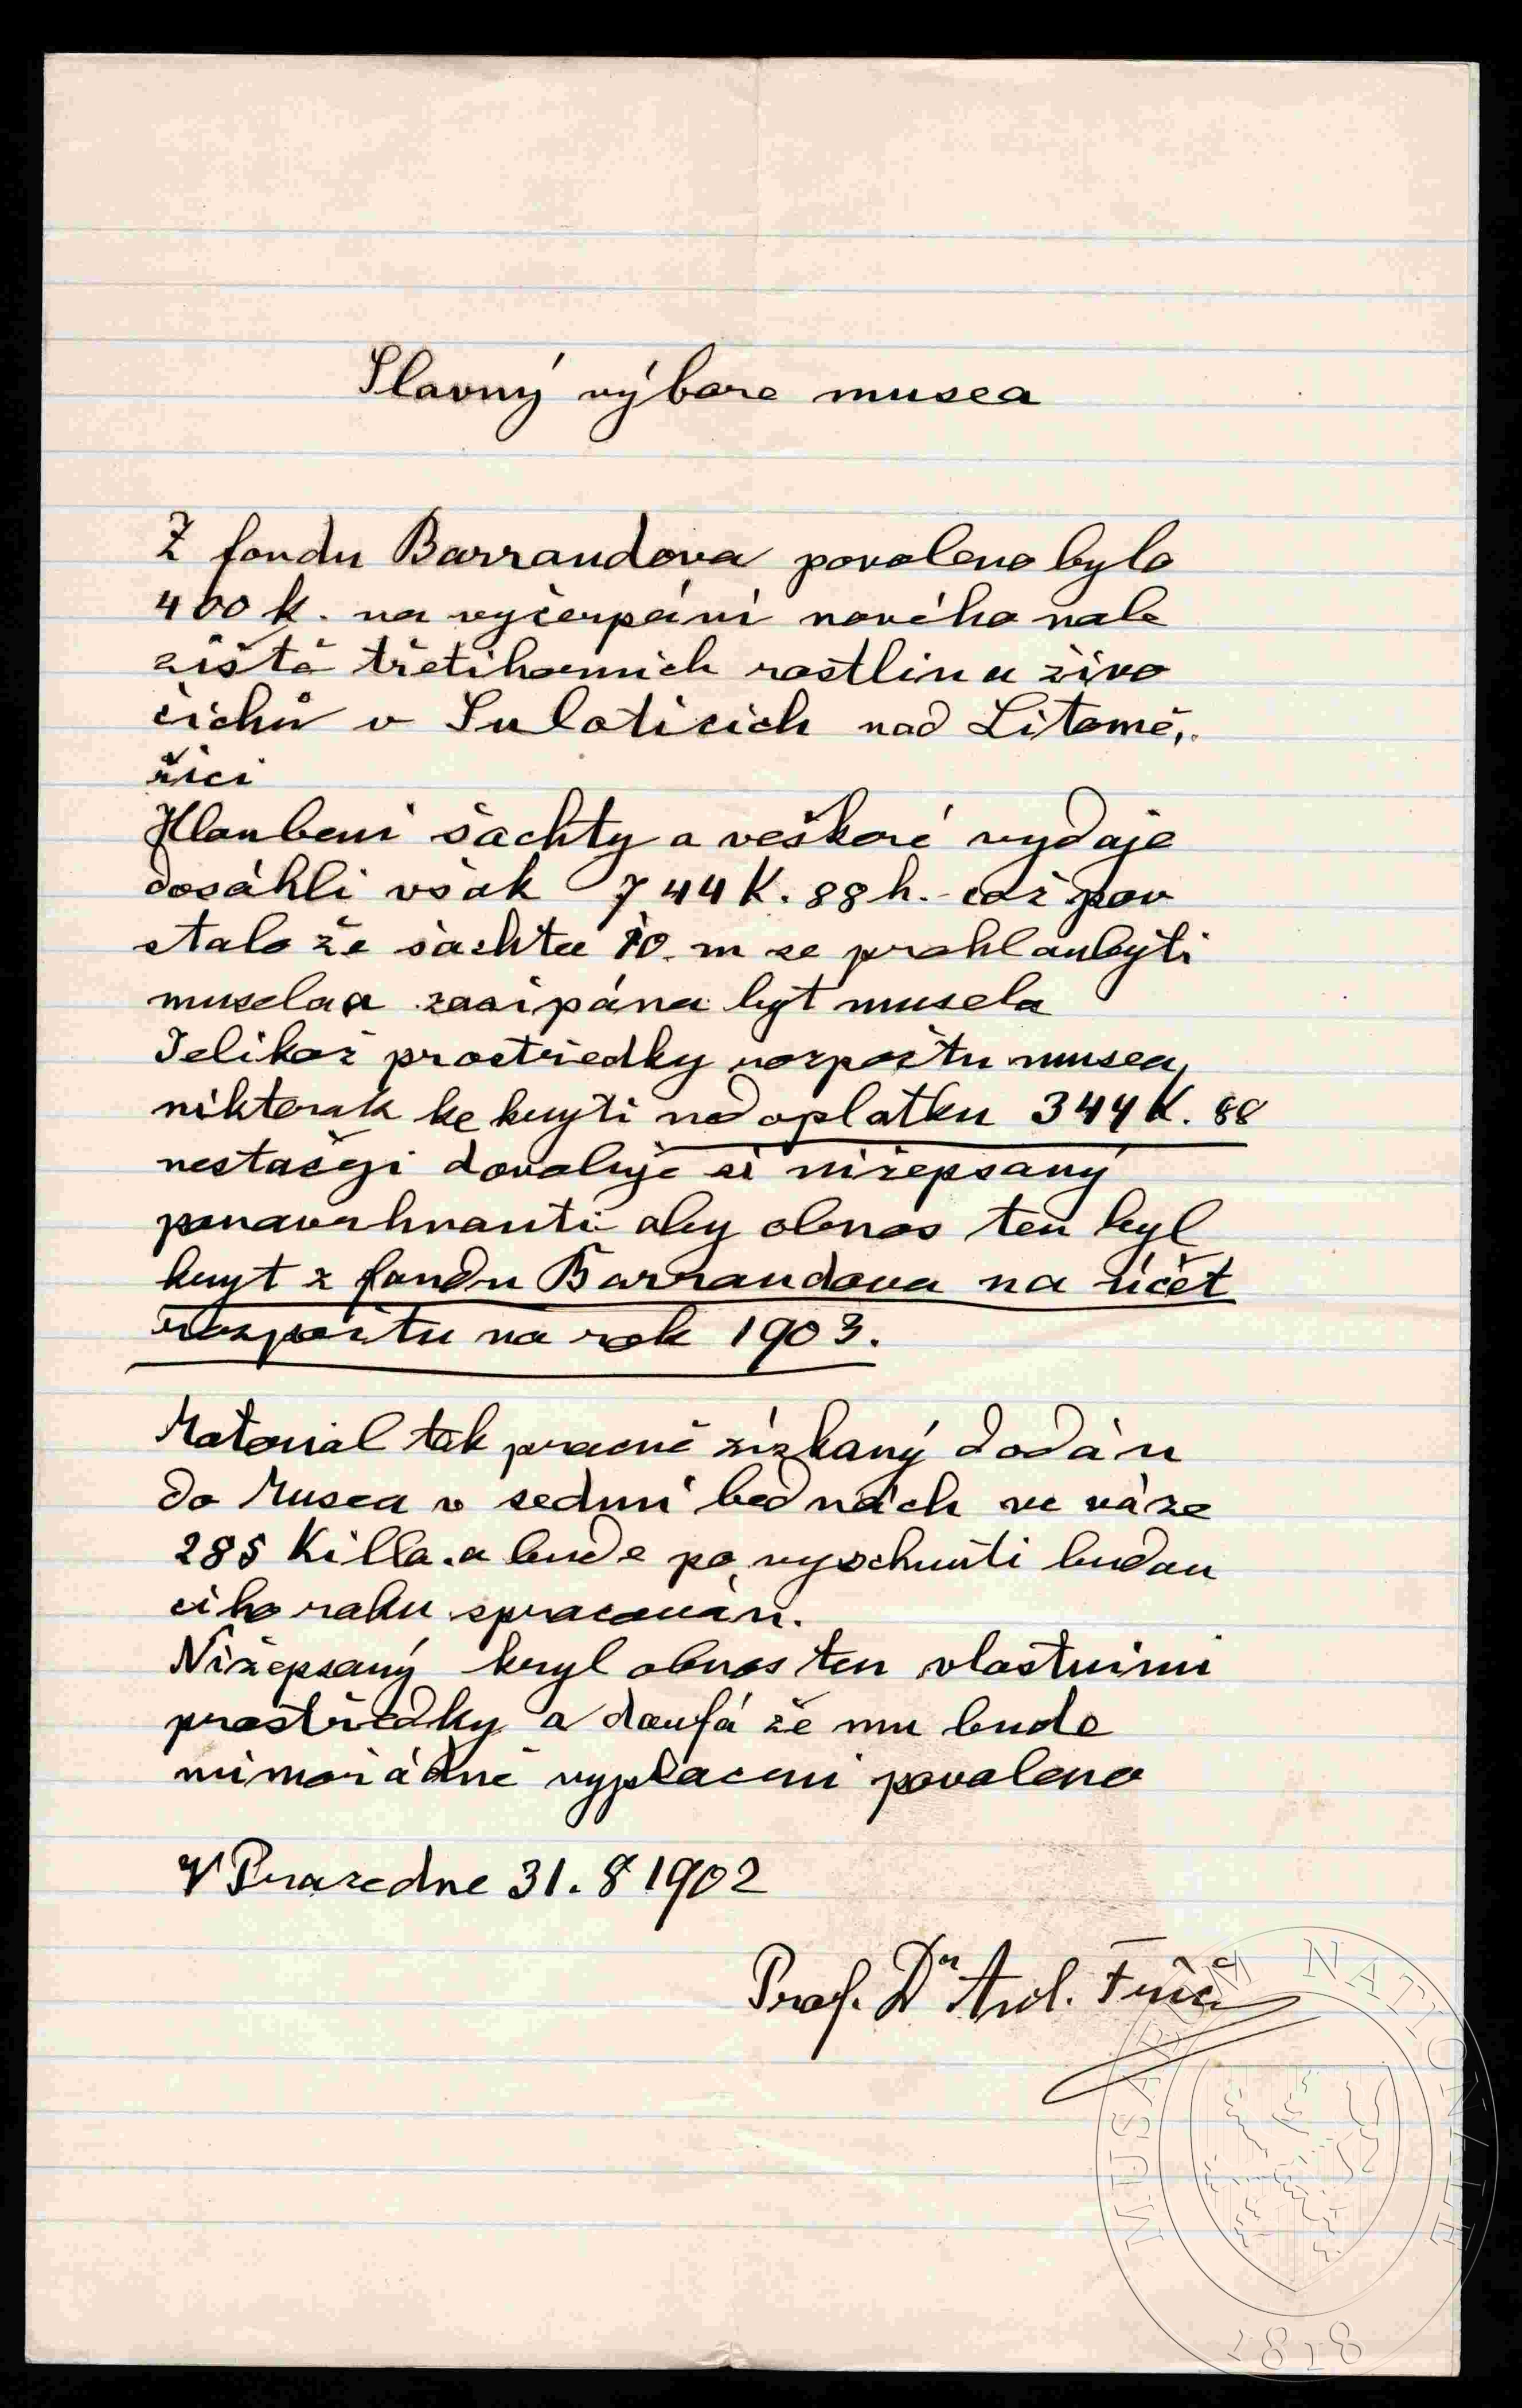 Slavný výbore musea
Z fondu Barrandova povoleno bylo
400 k. na vyčerpání nového nale
ziště třetihorních rostlin a živo
čichů v Suloticích nad Litomě,.
řici
Hloubení šachty a veškeré vydaje
dosáhli však 744 K. 88 h. - což pov
stalo že šachta 10. m se prohloubyti
musela a zasipána byt musela
Jelikož prostředky rozpočtu musea,
nikterak ke kryti nedoplatku 344 K. 88
nestačeji dovoluje si nížepsaný
ponavrhnauti aby obnos ten byl
kryt z fondu Barrandova na účet
rozpočtu na rok 1903.
Material tak pracně získaný dodán
do Musea v sedmi bednách ve váze
285 Killa. a bude po vyschnuti budou
cího roku spracován.
Nížepsaný kryl obnos ten vlastními
prostředky a doufá že mu bude
mimořádné vyplaceni povoleno
V Praze dne 31. 8 1902
Prof. Dr Ant. Frič
MUSAEUM NATIONALE
1818